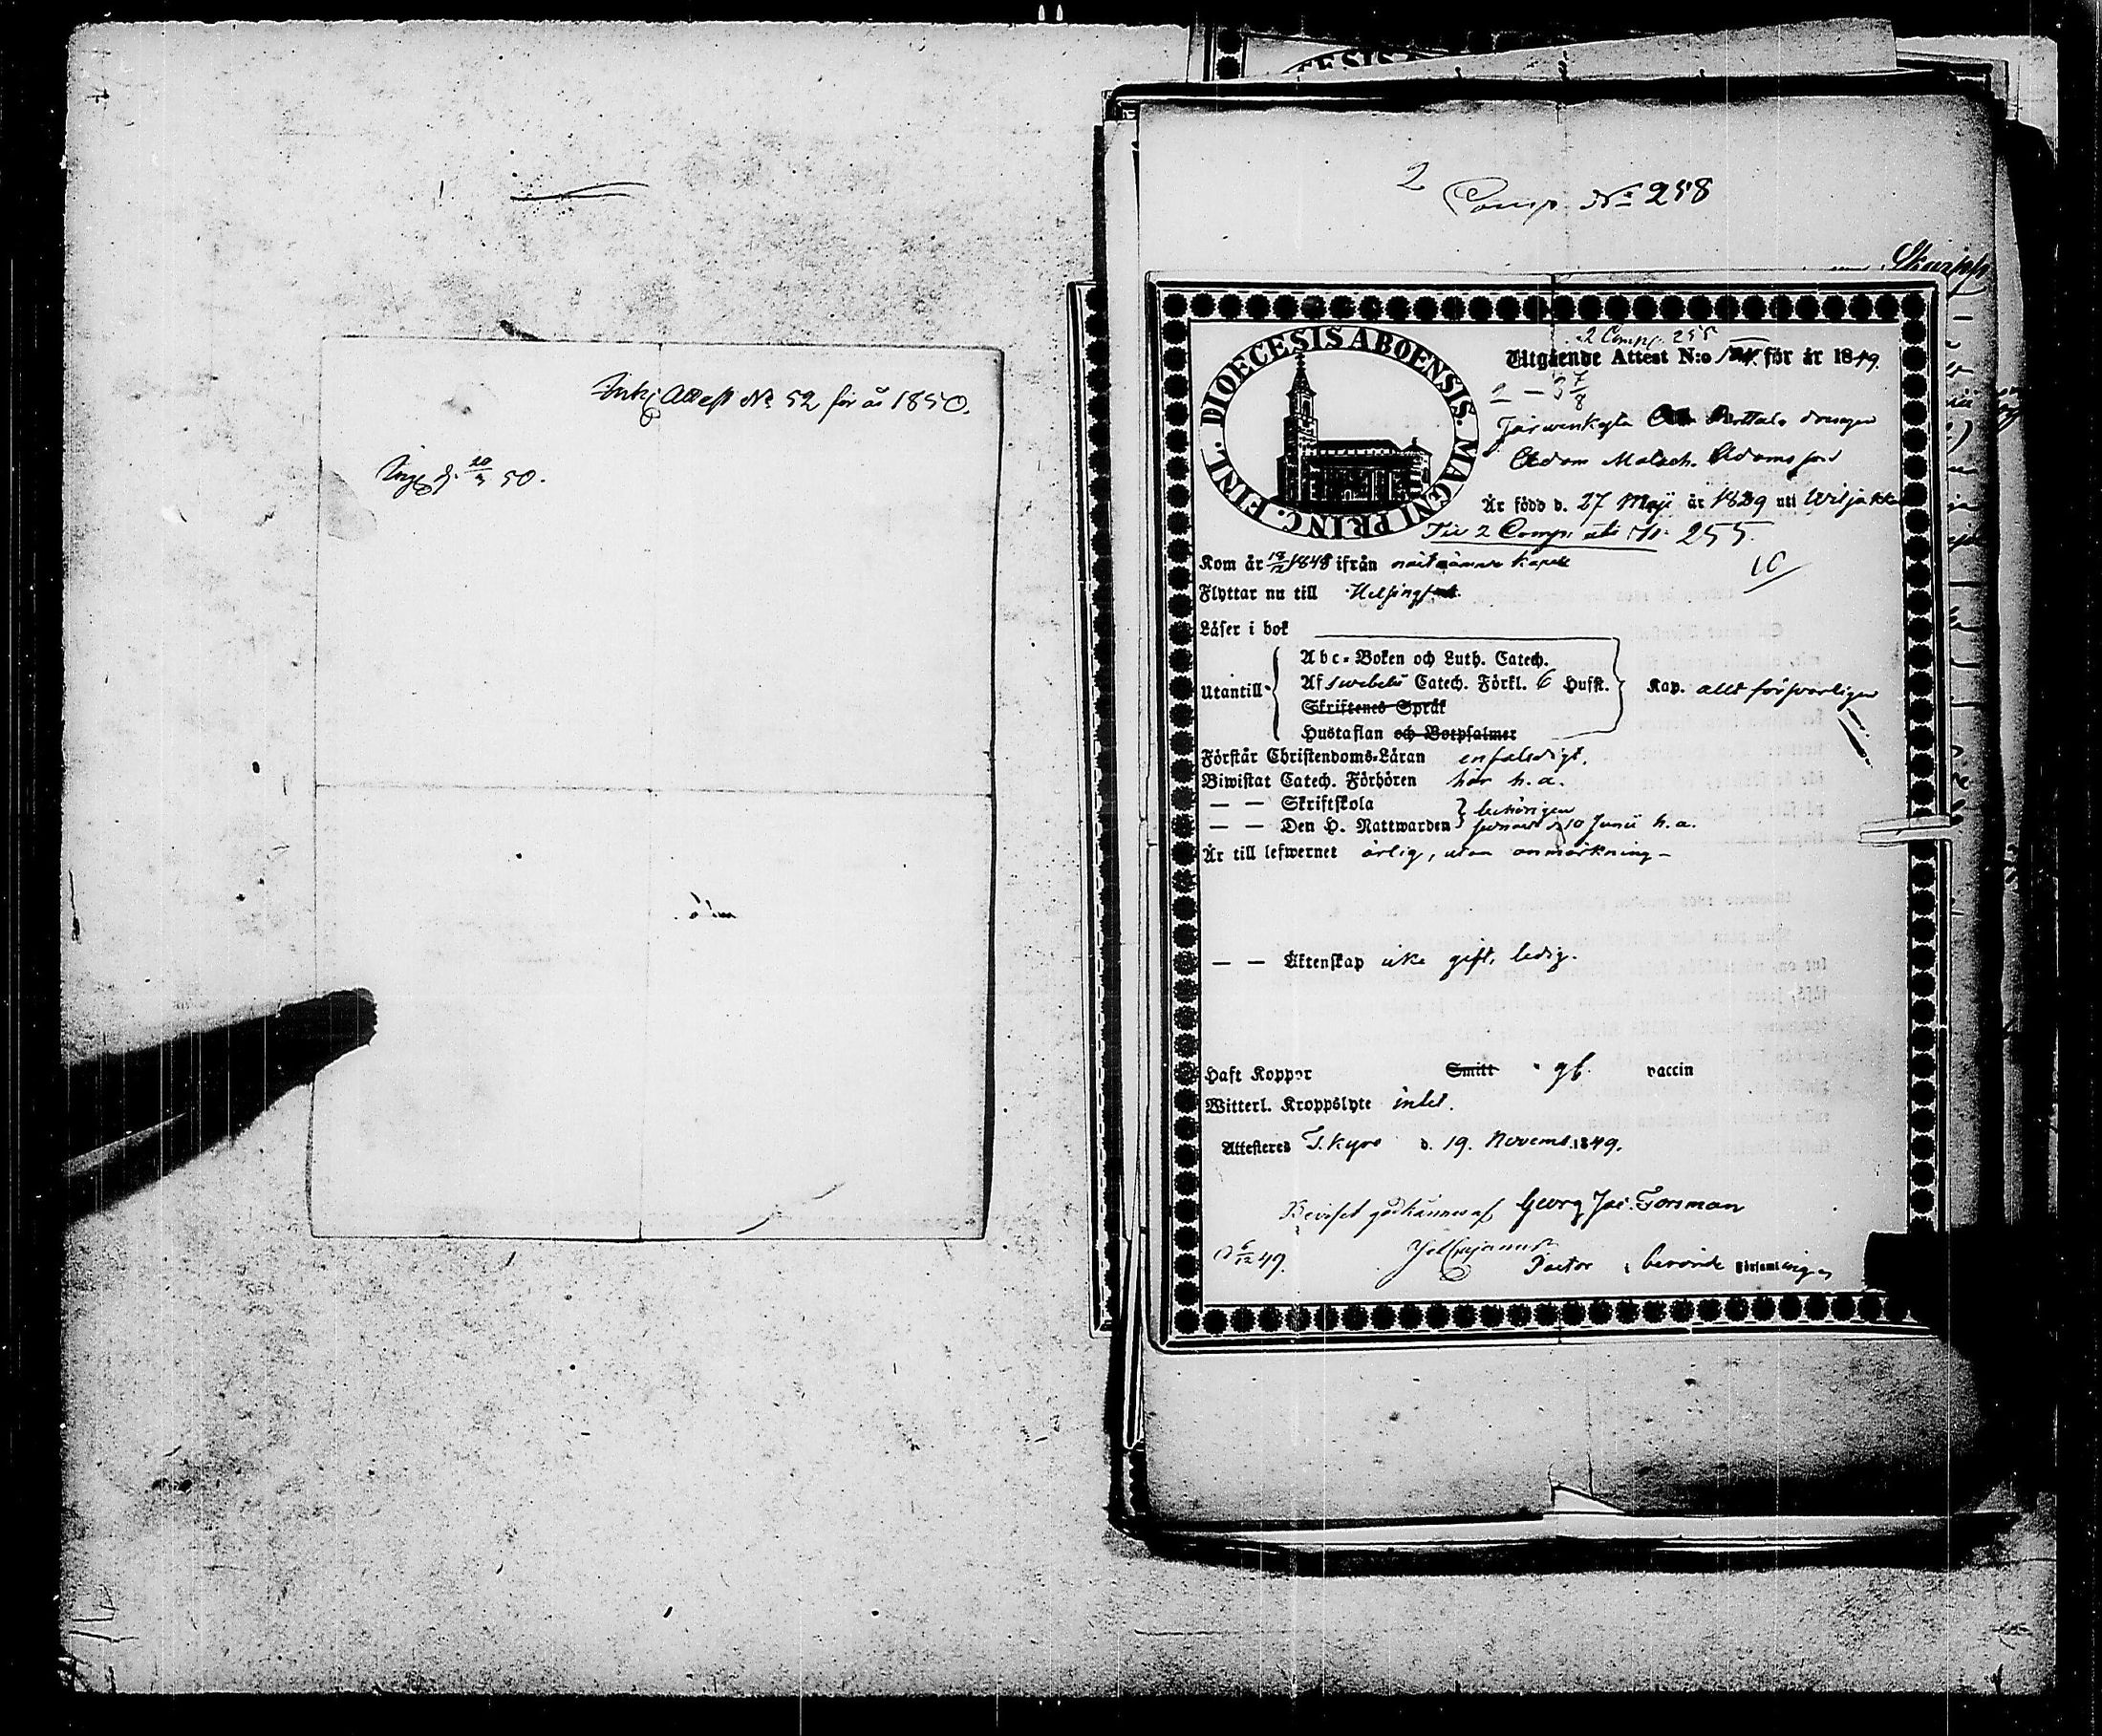 Ink. Attest No 52 för år 1850.
50.
2
Comp. No 258
Skarpp
DIOECESIS ABOENSIS. MAGNI PRINC. FINL.
2 Comp. 255
Utgående Attest N:o för år 1849.
Järwenkylä drengen
Adam Matath. Adamsson
Är född d. 27 Maji år 1829 uti Wiljakka
Till 2 Comp. No 255.
10
Kom år 18/12 1848 ifrån kapell
Flyttar nu till Helsingfors
Läser i bok
Utantill
Abc-Boken och Luth. Catech.
Af Swebelii Catech. Förkl. 6 Hufst. Kap. allt försvarligen
Skriftenes Språk
Hustaflan och Botpsalmer
Förstår Christendoms-Läran enfaldigt.
Biwistat Catech. Förhören här h. a.
— — Skriftskola behörigen
— — Den H. Nattwarden senast d 10 Junii h. a.
Är till lefwernet ärlig, utan anmärkning —
— — Äktenskap icke gift, ledig.
Haft Koppor Smitt gb. vaccin
Witterl. Kroppslyte intet.
Attesteres T. Kyro d. 19. Novemb. 1849.
Beviset godkännes af Georg Jac. Forsman
D 6/12 49.
Pastor i berörde Församlingen